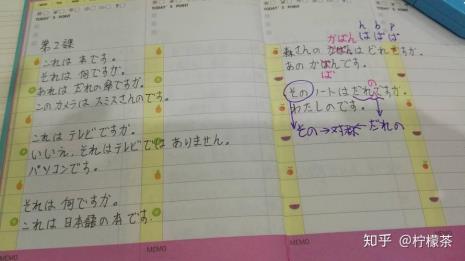 TODAY'S POINT
TODAY'S POINT
TODAY'S POINT
第2課
これは 本です。
それは 何ですか。
あれは だれの 傘ですか。
このカメラは スミスさんのです。
これは テレビですか。
いいえ、それは テレビでは ありません。
パソコンです。
それは 何ですか。
これは 日本語の 本です。
h b p
は ば ぱ
かばん
森さんの かばんは どれですか。
あの かばんです。
ば
の
その ノートは だれのですか。
わたしのです。
その → 对称 ← だれの
MEMO
MEMO
MEMO
知乎 @柠檬茶